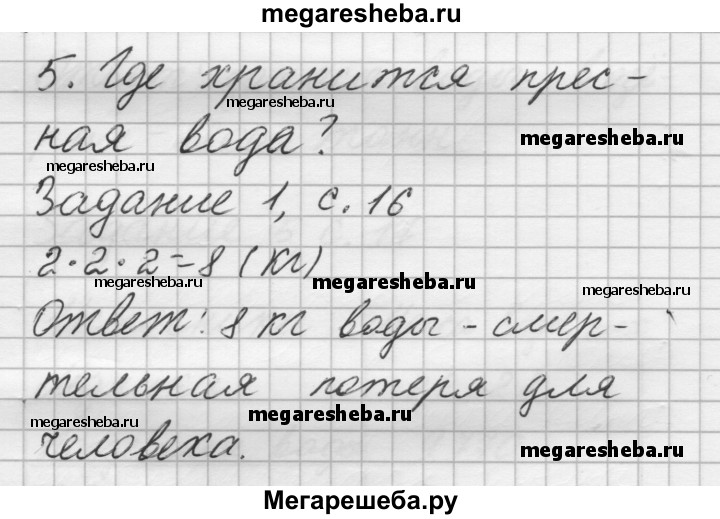 megaresheba.ru
5. Где хранится прес-
megaresheba.ru
ная вода?
megaresheba.ru
megaresheba.ru
Задание 1, с. 16
2·2·2=8 (кг)
megaresheba.ru
megaresheba.ru
megaresheba.ru
Ответ: 8 кг воды - смер-
тельная потеря для
megaresheba.ru
megaresheba.ru
человека.
megaresheba.ru
Мегарешеба.ру